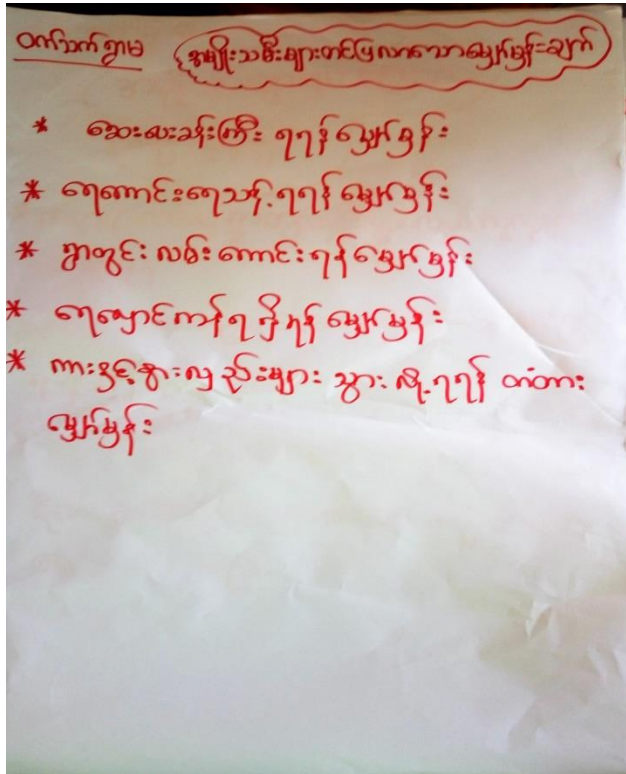 ဝက်သက်ရွာမ အမျိုးသမီးများတင်ပြလာသောမျှော်မှန်းချက်
* ဆေးပေးခန်းကြီး ရရန် မျှော်မှန်း
* ရေကောင်းရေသန့်ရရန် မျှော်မှန်း
* ရွာတွင်း လမ်းကောင်းရန် မျှော်မှန်း
* ရေလှောင်ကန်ရရှိရန် မျှော်မှန်း
* ကားနှင့်နွားလှည်းများ သွားလို့ရရန် တံတား
မျှော်မှန်း